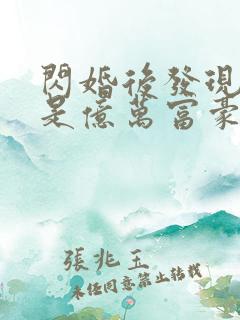 閃婚後發現
是億萬富豪
張兆玉
未任同意禁止轉載